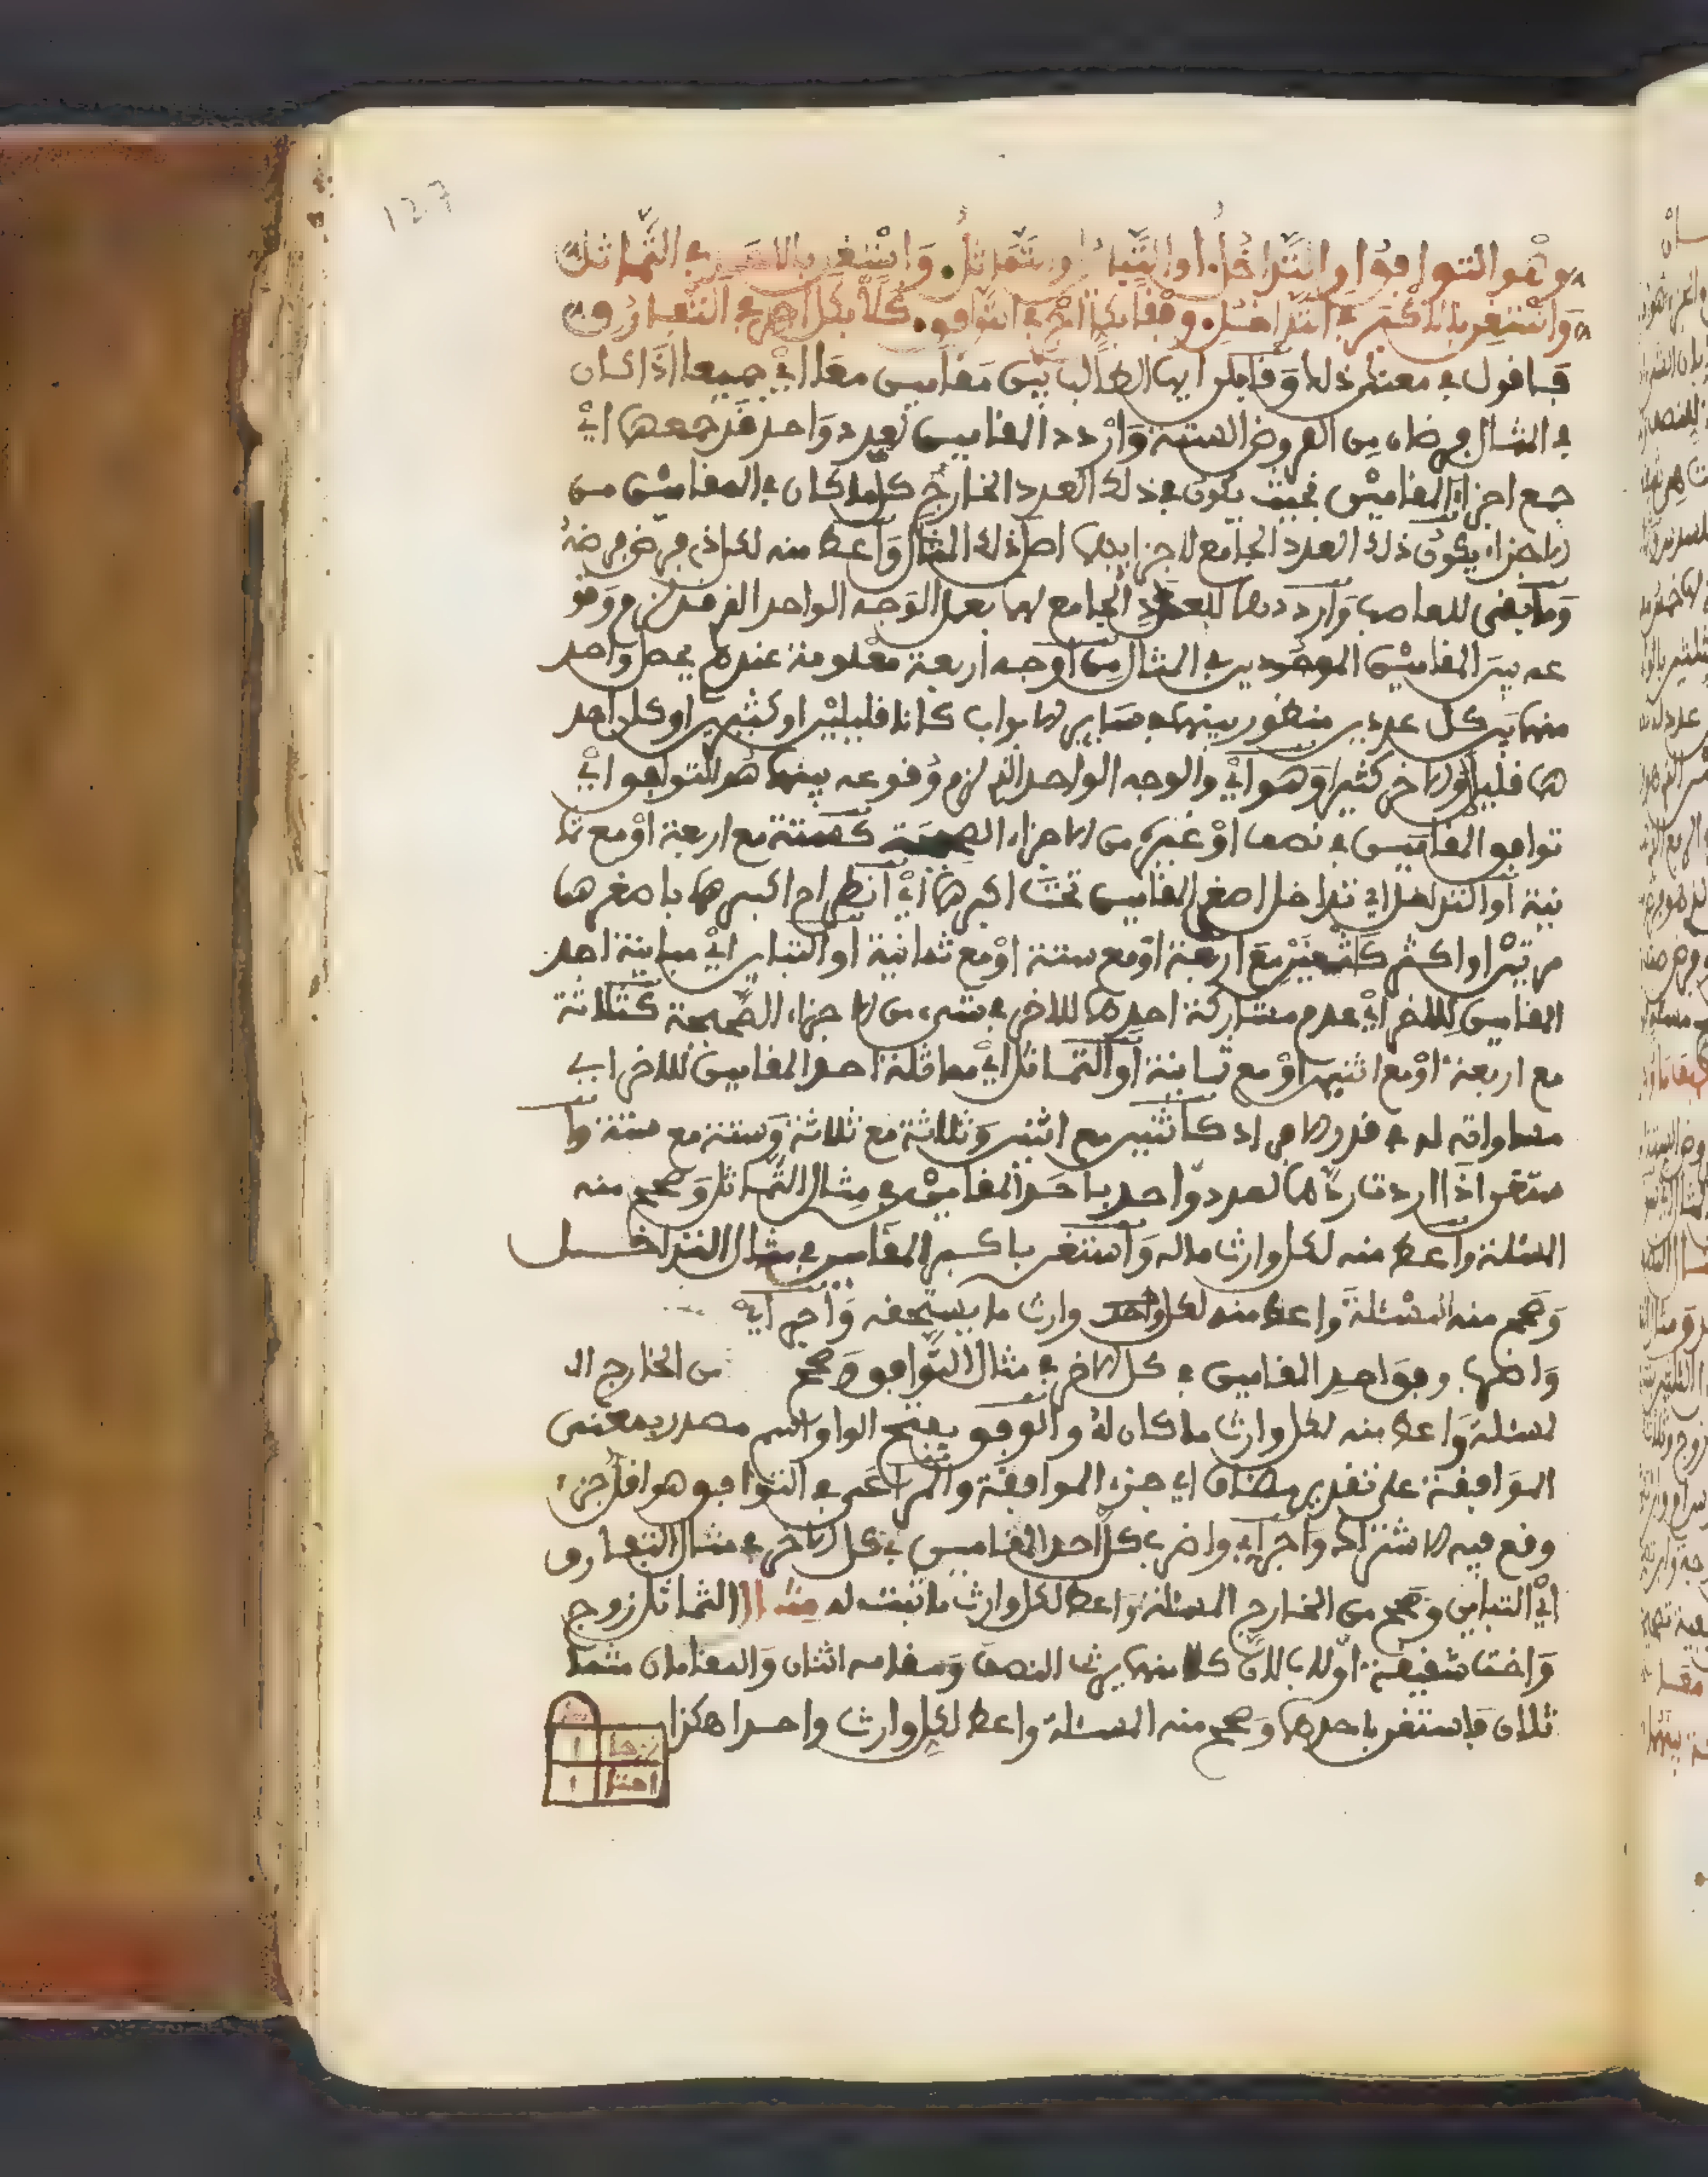 127
وهو التوافق او التداخل او التباين او تماثل واستغن بالاحد في التماثل
واستغن بالاكثر في التداخل وفقا بكل اخر في التوافق كلا بكل اخر في التعارف
فاقول في معنى ذلك وقابلن ايها الطالب بين مقامين معا اي جميعا اذا كان
في المثال فرضان من الفروض الستة واردد المقامين لعدد واحد قد جمعها اي
جمع اجزاء المقامين بحيث يكون في ذلك العدد الخارج كلما كان في المقامين من
الاجزاء يكون ذلك العدد الجامع لاجزايهما اصل ذلك المثال واعط منه لكل ذي فرض فرضه
وما بقي للعاصب وارددهما للعدد الجامع لهما بعمل الوجه الواحد الذي لزم وقو
عه بين المقامين الموجودين في المثال من اوجه اربعة معلومة عندهم يحصل واحد
منها بين كل عددين منظور بينهما في ساير الابواب كانا قليلين او كثيرين او كان احد
هما قليلا والاخر كثيرا وهو اي والوجه الواحد الذي لزم وقوعه بينهما هو التوافق اي
توافق المقامين في نصف او غيره من الاجزاء الصحيحة كستة مع اربعة او مع ثما
نية او التداخل اي تداخل اصغر المقامين تحت اكبرهما اي انطراح اكبرهما باصغرهما
مرتين او اكثر كاثنين مع اربعة او مع ستة او مع ثمانية او التباين اي مباينة احد
المقامين للاخر اي عدم مشاركة احدهما للاخر في شيء من الاجزاء الصحيحة كثلاثة
مع اربعة او مع اثنين او مع ثمانية او التماثل اي مماثلة احد المقامين للاخر اي
مساواته له في قدر الافراد كاثنين مع اثنين وثلاثة مع ثلاثة وستة مع ستة وا
ستغن اذا اردت ردهما لعدد واحد باحد المقامين في مثال التماثل وصحح منه
المسئلة واعط منه لكل وارث ماله واستغن باكبر المقامين في مثال التداخل
وصحح منه المسئلة واعط منه لكل واحد وارث ما يستحقه واجر اي
واضرب وفق احد المقامين في كل الاخر في مثال التوافق وصحح من الخارج ال
لمسئلة واعط منه لكل وارث ما كان له والوفق بفتح الواو اسم مصدر بمعنى
الموافقة على تقدير مضاف اي جزء الموافقة والمراعى في التوافق هو اقل جزء
وقع فيه الاشتراك واجر اي واضرب كل احد المقامين في كل الاخر في مثال التعارف
اي التباين وصحح من الخارج المسئلة واعط لكل وارث ما ثبت له مثال التماثل زوج
واخت شقيقة او لاب لان كلا منهما يرث النصف ومقامه اثنان والمقامان متما
ثلان فاستغن باحدهما وصحح منه المسئلة واعط لكل وارث واحدا هكذا
زوجا ١
اختا ١